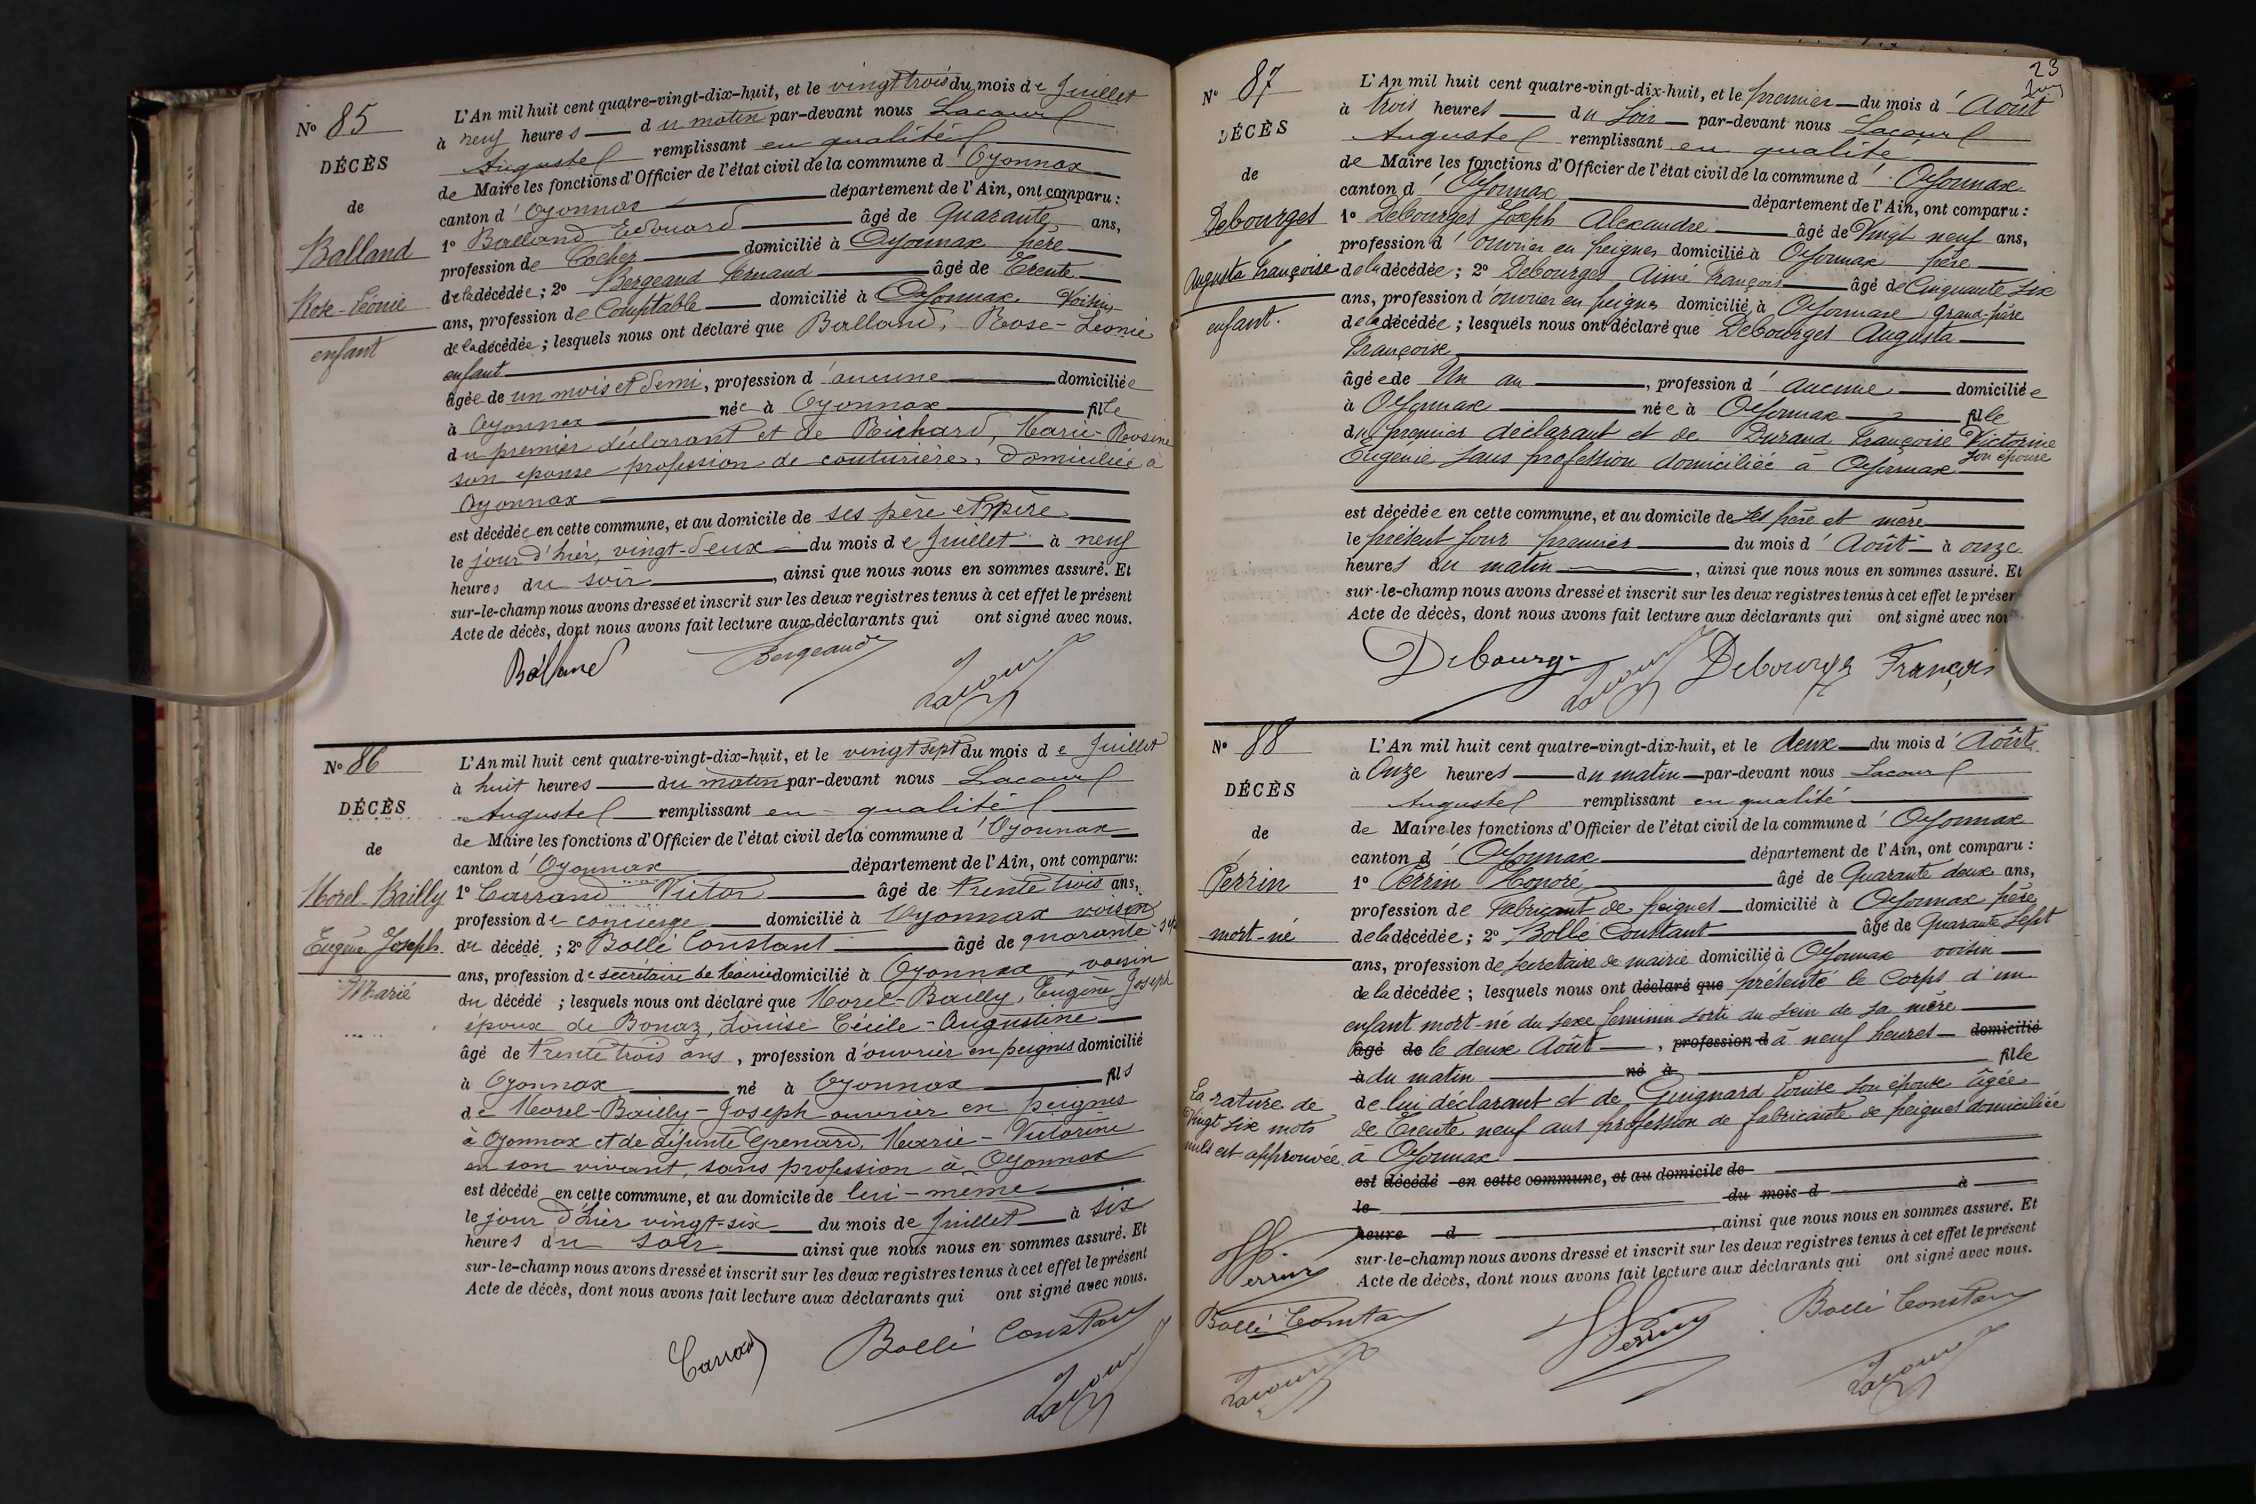 N° 85
DÉCÈS
de
Balland
Rose-Léonie
enfant
L'An mil huit cent quatre-vingt-dix-huit, et le vingt trois du mois de Juillet
à neuf heures du matin par-devant nous Lacour
Auguste remplissant en qualité
de Maire les fonctions d'Officier de l'état civil de la commune d'Oyonnax
canton d'Oyonnax département de l'Ain, ont comparu :
1° Balland Edouard âgé de quarante ans,
profession de Cocher domicilié à Oyonnax père
de la décédée ; 2° Bergeand Fernand âgé de Trente
ans, profession de Comptable domicilié à Oyonnax Voisin
de la décédée ; lesquels nous ont déclaré que Balland, Rose-Léonie
enfant
âgée de un mois et demi, profession d'aucune domiciliée
à Oyonnax née à Oyonnax fille
du premier déclarant et de Richard, Marie-Rosine
son épouse profession de couturière, domiciliée à
Oyonnax
est décédée en cette commune, et au domicile de ses père et mère
le jour d'hier, vingt-deux du mois de Juillet à neuf
heures du soir, ainsi que nous nous en sommes assuré. Et
sur-le-champ nous avons dressé et inscrit sur les deux registres tenus à cet effet le présent
Acte de décès, dont nous avons fait lecture aux déclarants qui ont signé avec nous.
Balland Bergeand Lacour
N° 86
DÉCÈS
de
Morel-Bailly
Eugène Joseph.
Marié
L'An mil huit cent quatre-vingt-dix-huit, et le vingt sept du mois de Juillet
à huit heures du matin par-devant nous Lacour
Auguste remplissant en qualité
de Maire les fonctions d'Officier de l'état civil de la commune d'Oyonnax
canton d'Oyonnax département de l'Ain, ont comparu :
1° Carrand Victor âgé de trente trois ans,
profession de concierge domicilié à Oyonnax voisin
du décédé ; 2° Bollé Constant âgé de quarante sept
ans, profession de secrétaire de Mairie domicilié à Oyonnax, voisin
du décédé ; lesquels nous ont déclaré que Morel-Bailly, Eugène Joseph
époux de Bonaz, Louise Cécile-Augustine
âgé de trente trois ans, profession d'ouvrier en peignes domicilié
à Oyonnax né à Oyonnax fils
de Morel-Bailly-Joseph ouvrier en peignes
à Oyonnax et de défunte Grenard, Marie-Victorine
en son vivant, sans profession à Oyonnax
est décédé en cette commune, et au domicile de lui-même
le jour d'hier vingt-six du mois de Juillet à six
heures du soir ainsi que nous nous en sommes assuré. Et
sur-le-champ nous avons dressé et inscrit sur les deux registres tenus à cet effet le présent
Acte de décès, dont nous avons fait lecture aux déclarants qui ont signé avec nous.
Carrand Bollé Constant
Lacour
23
N° 87
DÉCÈS
de
Debourges
Augusta Françoise
enfant.
L'An mil huit cent quatre-vingt-dix-huit, et le premier du mois d'Août
à trois heures du Soir par-devant nous Lacour
Auguste remplissant en qualité
de Maire les fonctions d'Officier de l'état civil de la commune d'Oyonnax
canton d'Oyonnax département de l'Ain, ont comparu :
1° Debourges Joseph Alexandre âgé de Vingt neuf ans,
profession d'ouvrier en peignes domicilié à Oyonnax père
de la décédée ; 2° Debourges Aimé François âgé de Cinquante six
ans, profession d'ouvrier en peignes domicilié à Oyonnax grand-père
de la décédée ; lesquels nous ont déclaré que Debourges Augusta
Françoise
âgée de Un an, profession d'aucune domiciliée
à Oyonnax née à Oyonnax fille
du premier déclarant et de Durand Françoise Victorine
Eugénie sans profession domiciliée à Oyonnax son épouse
est décédée en cette commune, et au domicile de ses père et mère
le présent jour premier du mois d'Août à onze
heures du matin, ainsi que nous nous en sommes assuré. Et
sur-le-champ nous avons dressé et inscrit sur les deux registres tenus à cet effet le présen
Acte de décès, dont nous avons fait lecture aux déclarants qui ont signé avec nou
Debourges Lacour Debourges François
N° 88
DÉCÈS
de
Perrin
mort-né
L'An mil huit cent quatre-vingt-dix-huit, et le deux du mois d'Août.
à Onze heures du matin par-devant nous Lacour
Auguste remplissant en qualité
de Maire les fonctions d'Officier de l'état civil de la commune d'Oyonnax
canton d'Oyonnax département de l'Ain, ont comparu :
1° Perrin Honoré âgé de Quarante deux ans,
profession de Fabricant de peignes domicilié à Oyonnax père
de la décédée ; 2° Bollé Constant âgé de Quarante sept
ans, profession de Secrétaire de mairie domicilié à Oyonnax voisin
de la décédée ; lesquels nous ont déclaré que présenté le Corps d'un
enfant mort-né du sexe féminin sorti du sein de sa mère
âgé de le deux Août, profession d à neuf heures domicilié
à du matin né à fille
de lui déclarant et de Guignard Louise son épouse âgée
de Trente neuf ans profession de fabricante de peignes domiciliée
à Oyonnax
est décédé en cette commune, et au domicile de
le du mois d à
heure d, ainsi que nous nous en sommes assuré. Et
sur-le-champ nous avons dressé et inscrit sur les deux registres tenus à cet effet le présent
Acte de décès, dont nous avons fait lecture aux déclarants qui ont signé avec nous.
La rature de
Vingt six mots
nuls est approuvée
H Perrin
Bollé Constant
Lacour
H Perrin Bollé Constant
Lacour